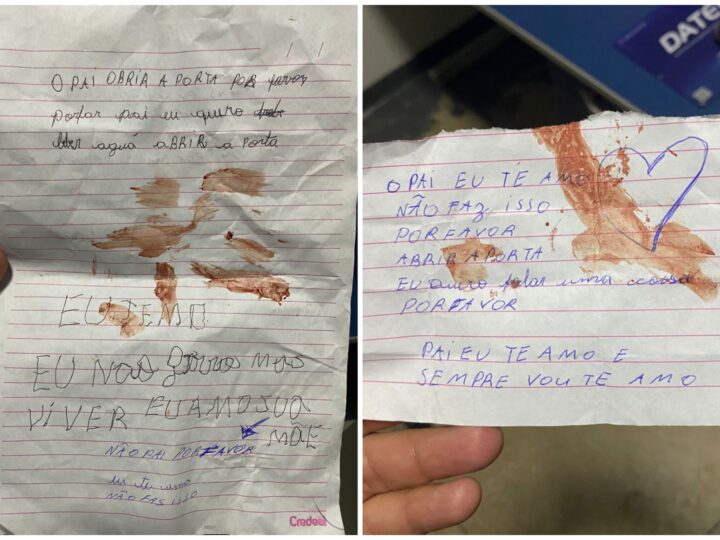 O PAI OBRIR A PORTA POR favor
pai eu quero
aguá ABRIR a PORTA
EU TEMO
EU NãO mas
VIVER EUAMOSUA
MÃE
NÃO PAI PORFAVOR
eu te amo
NÃO FAS ISSO
Credeal
DATE
O PAI EU TE AMO
NÃO FAZ ISSO
PORFAVOR
ABRIR APORTA
EU quero falar uma
PORFAVOR
PAI EU TE AMO E
SEMPRE VOU TE AMO